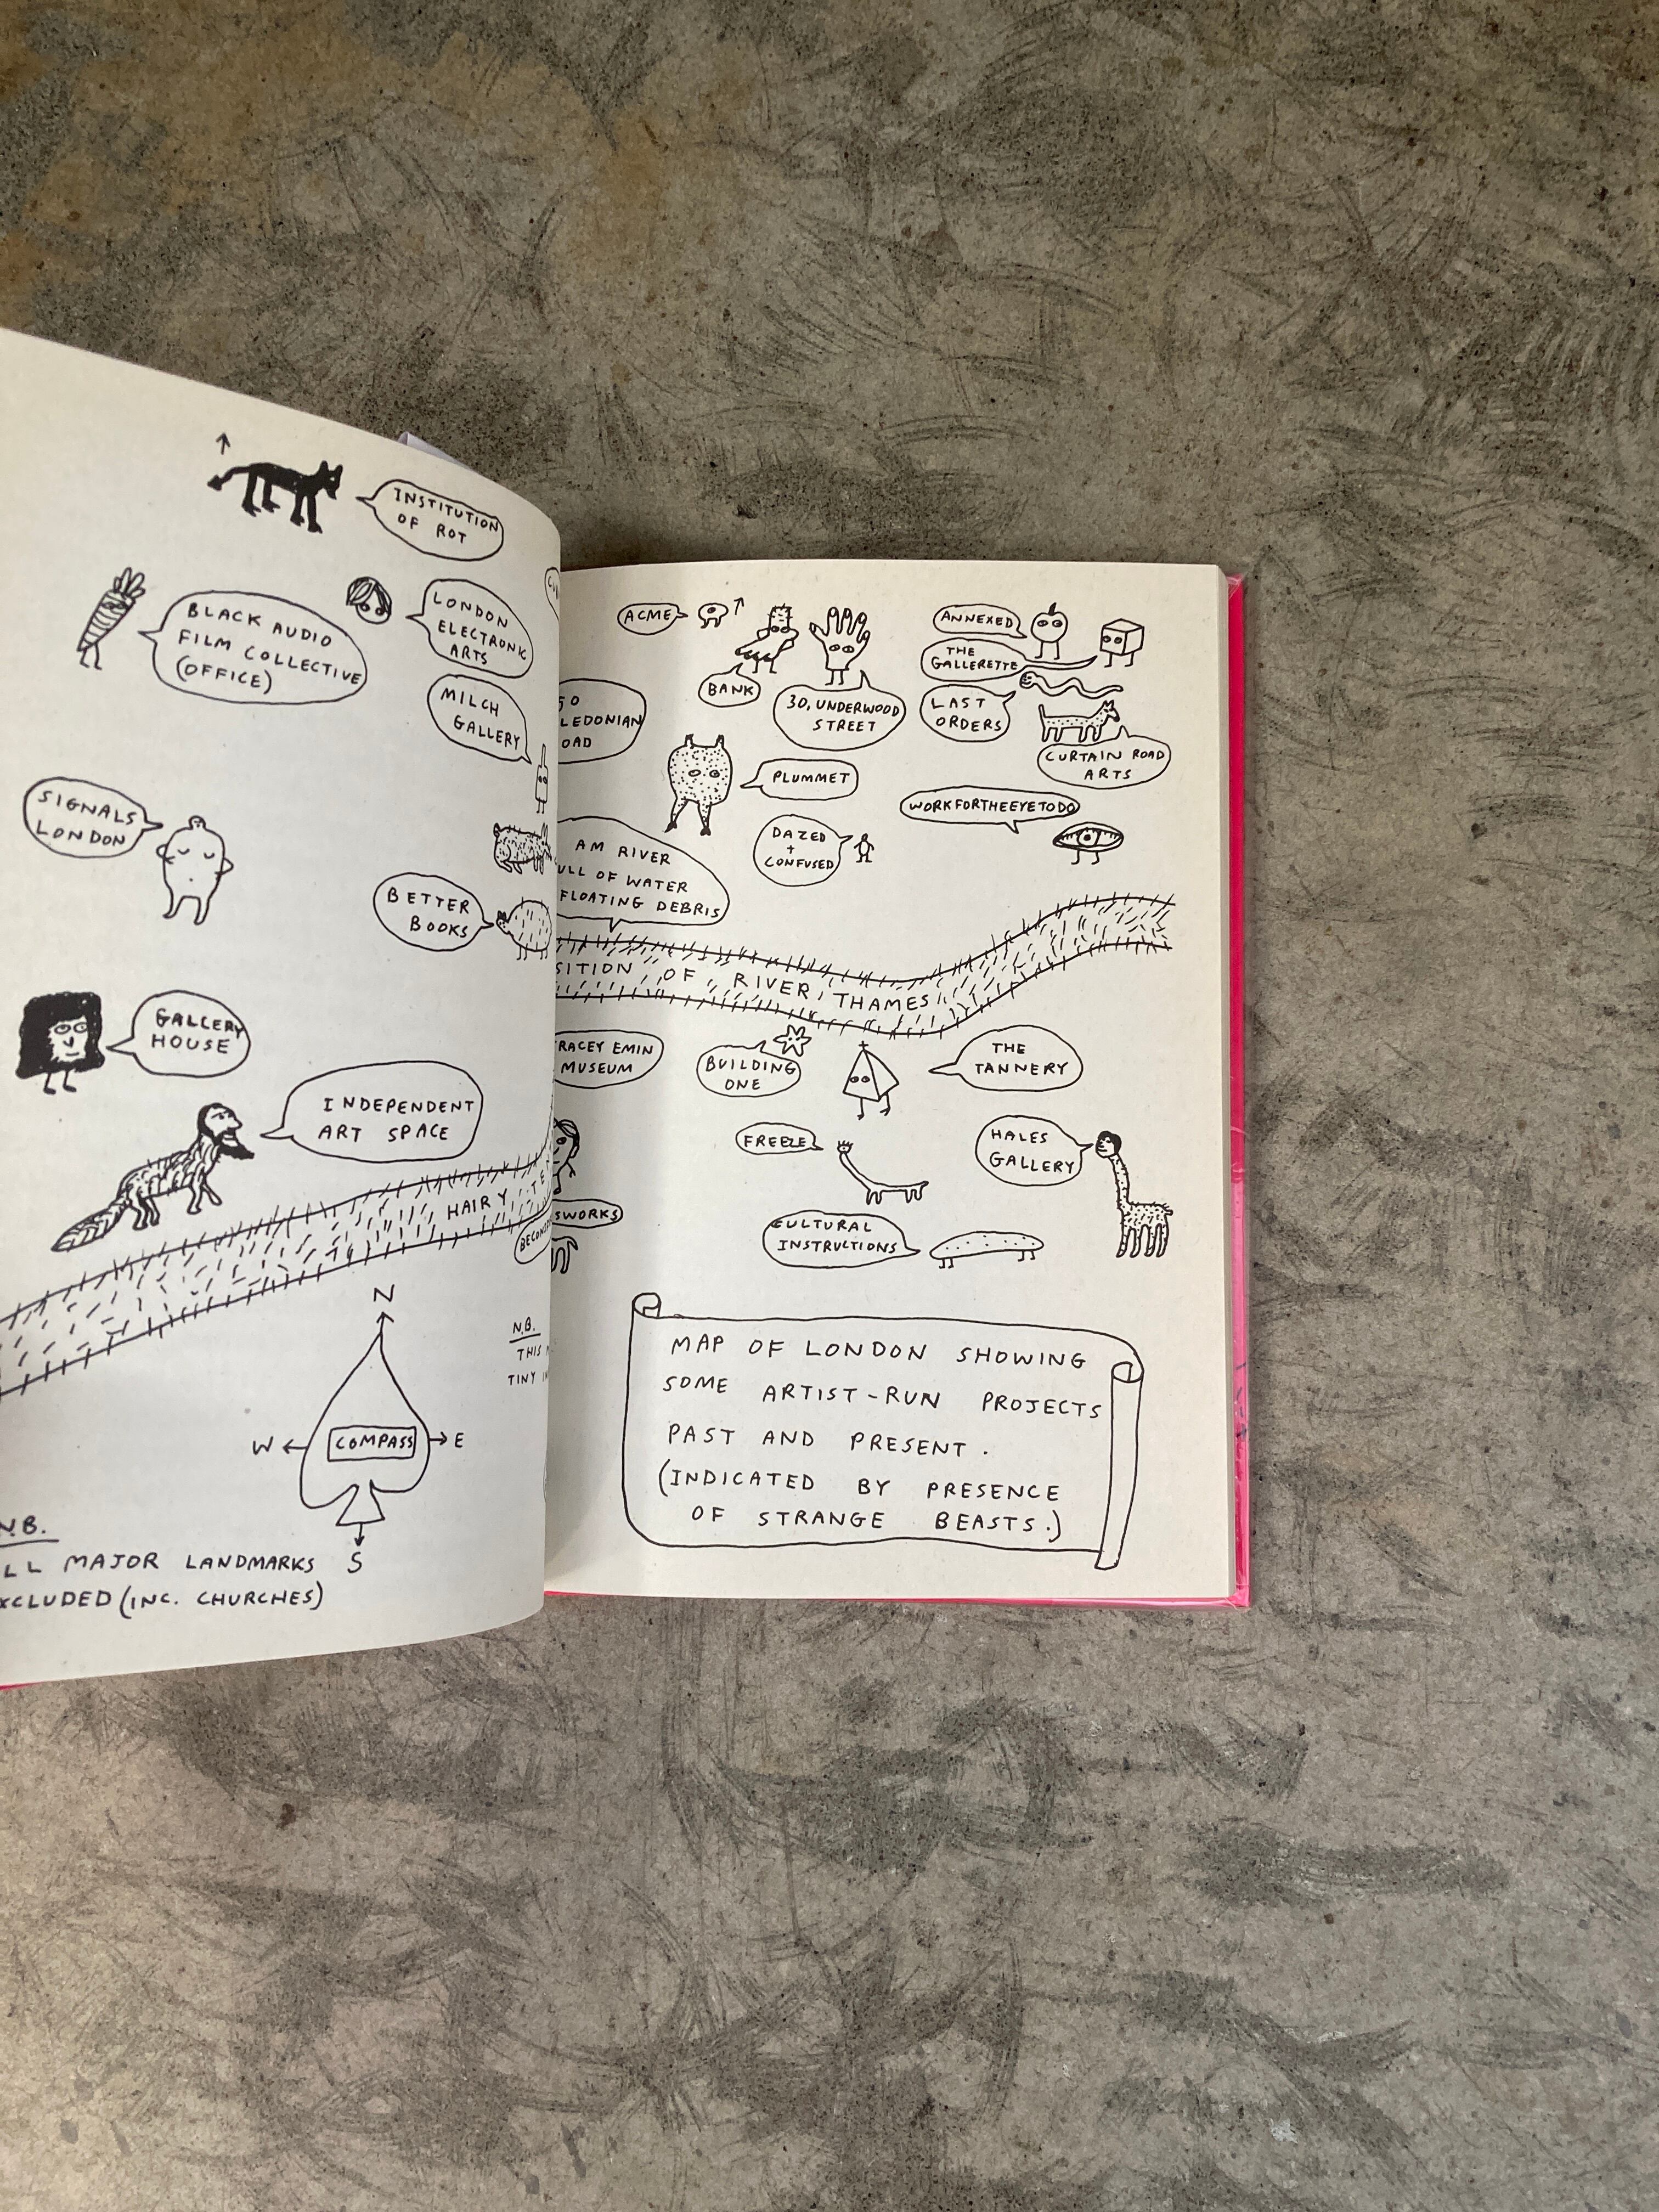 INSTITUTION
OF ROT
BLACK AUDIO
FILM COLLECTIVE
(OFFICE)
LONDON
ELECTRONIC
ARTS
MILCH
GALLERY
SIGNALS
LONDON
BETTER
BOOKS
GALLERY
HOUSE
INDEPENDENT
ART SPACE
HAIRY
N
W
COMPASS
E
S
N.B.
THIS
TINY
N.B.
LL MAJOR LANDMARKS
XCLUDED (INC. CHURCHES)
ACME
BANK
30, UNDERWOOD
STREET
ANNEXED
THE
GALLERETTE
LAST
ORDERS
CURTAIN ROAD
ARTS
50
LEDONIAN
OAD
PLUMMET
WORKFORTHEEYETODO
DAZED
+
CONFUSED
AM RIVER
ULL OF WATER
FLOATING DEBRIS
SITION OF RIVER THAMES
RACEY EMIN
MUSEUM
BUILDING
ONE
THE
TANNERY
FREEZE
HALES
GALLERY
SWORKS
CULTURAL
INSTRUCTIONS
MAP OF LONDON SHOWING
SOME ARTIST-RUN PROJECTS
PAST AND PRESENT.
(INDICATED BY PRESENCE
OF STRANGE BEASTS.)